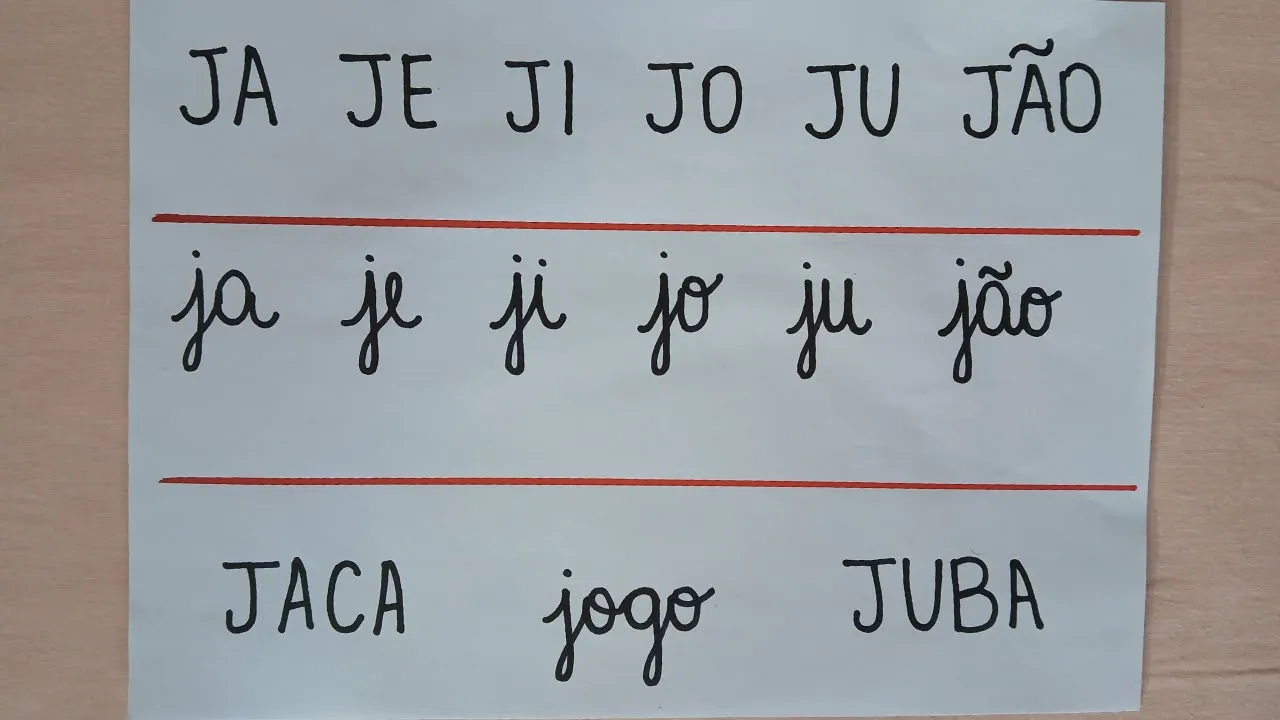 JA JE JI JO JU JÃO
ja je ji jo ju jão
JACA jogo JUBA